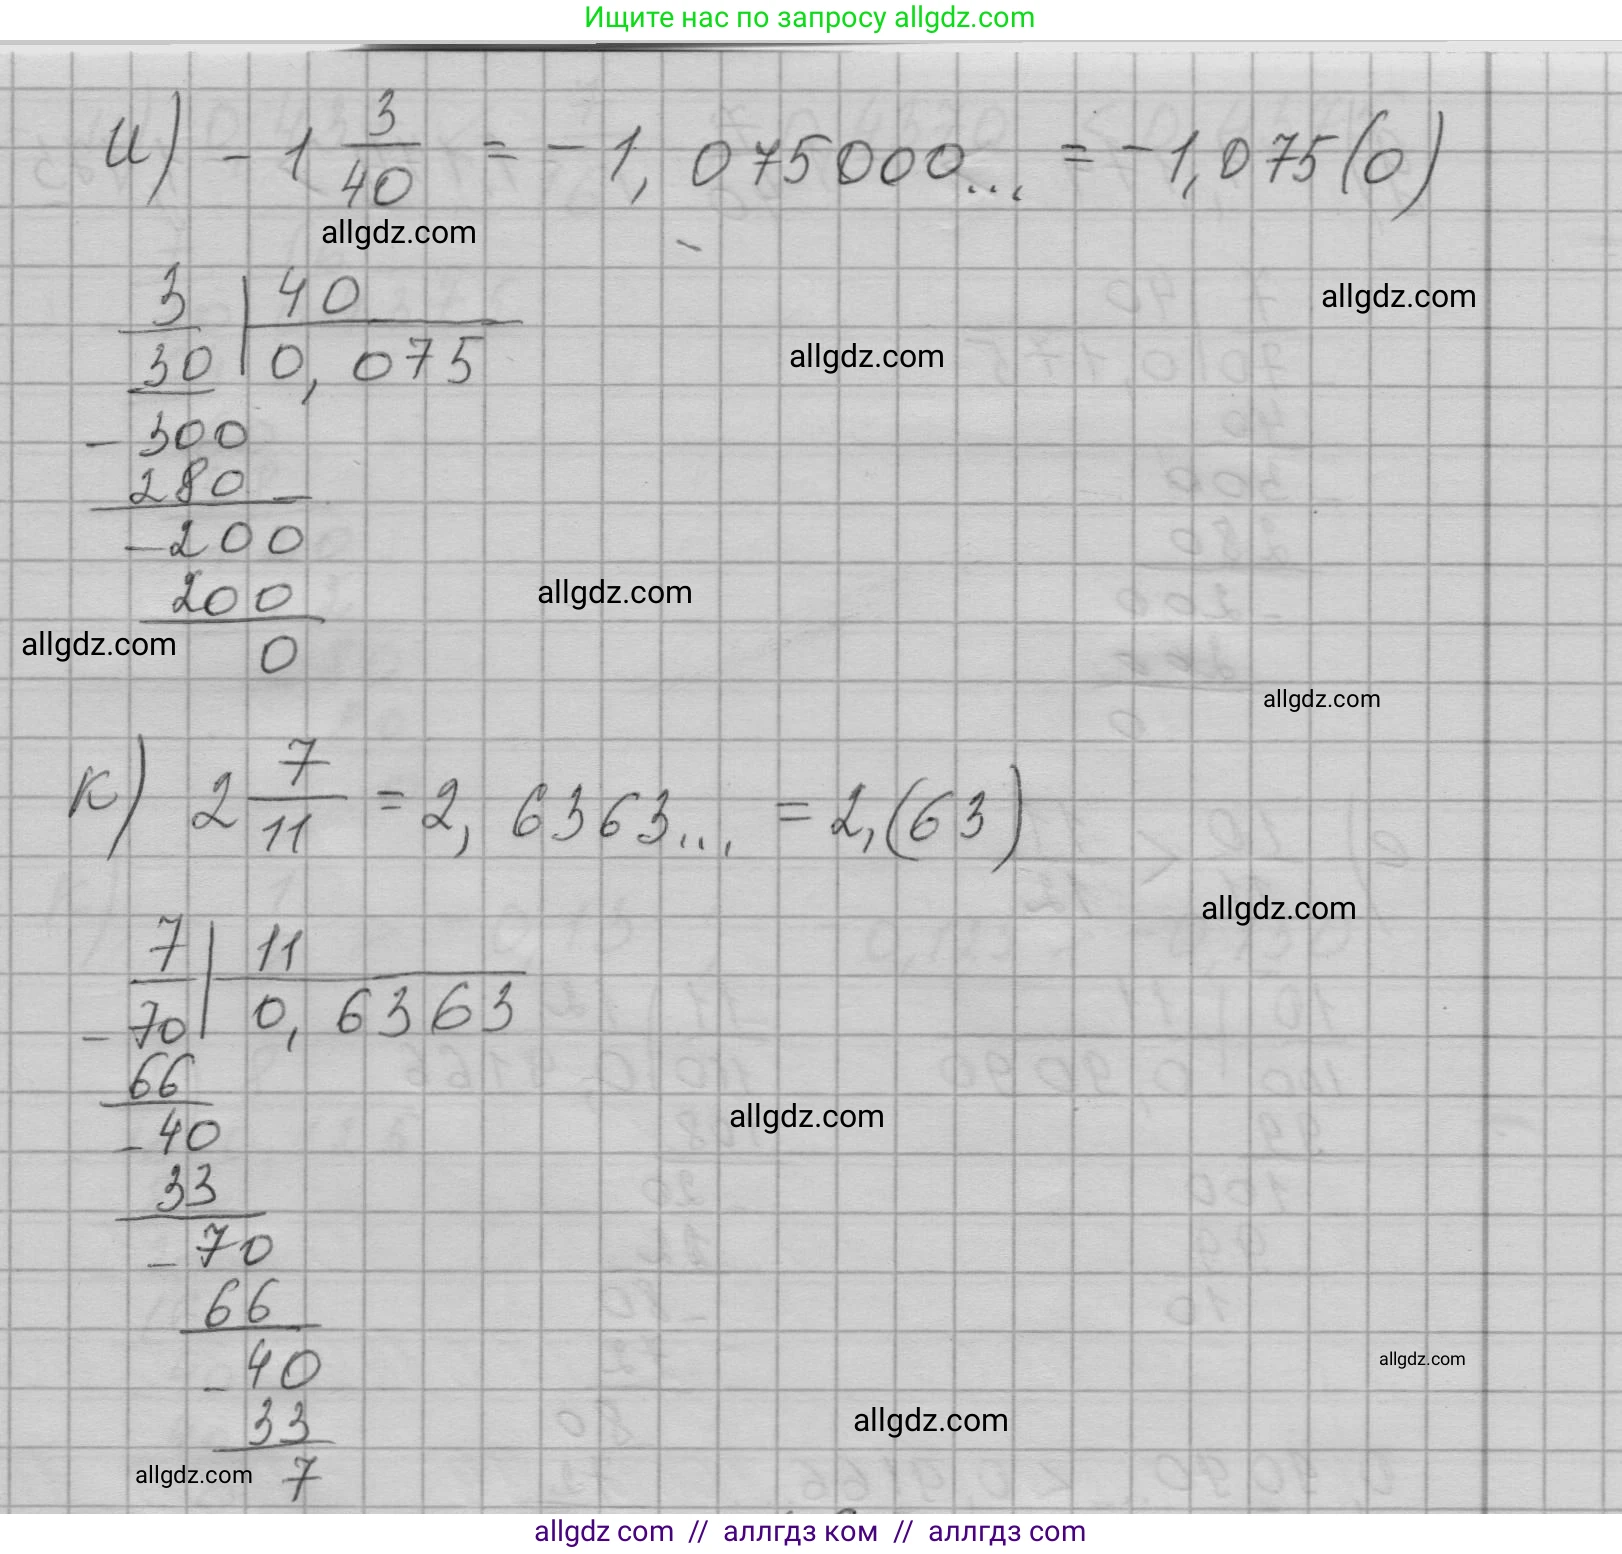 Ищите нас по запросу allgdz.com
и) - 1 3/40 = - 1, 075000... = - 1,075(0)
allgdz.com
allgdz.com
3 | 40
allgdz.com
30 | 0, 075
- 300
280
- 200
allgdz.com
200
allgdz.com
0
allgdz.com
к) 2 7/11 = 2, 6363... = 2,(63)
allgdz.com
7 | 11
- 70 | 0, 6363
66
allgdz.com
- 40
33
- 70
66
allgdz.com
- 40
allgdz.com
33
allgdz.com
7
allgdz com // аллгдз ком // allgdz com